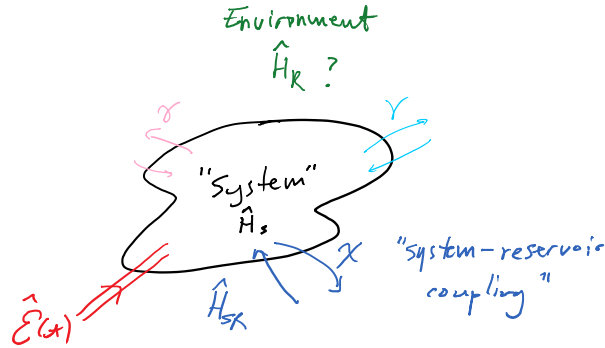 Environment
Ĥ_R ?
γ
γ
"System"
Ĥ_s
χ
"system-reservoir
coupling"
Ĥ_SR
Ê(t)